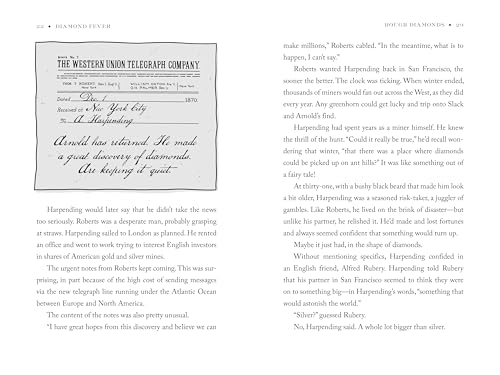 22 • DIAMOND FEVER
THE WESTERN UNION TELEGRAPH COMPANY.
Dated Dec. 1 1870
Received at New York City
To A Harpending
Arnold has returned. He made
a great discovery of diamonds.
Are keeping it quiet.
Harpending would later say that he didn't take the news
too seriously. Roberts was a desperate man, probably grasping
at straws. Harpending sailed to London as planned. He rented
an office and went to work trying to interest English investors
in shares of American gold and silver mines.
The urgent notes from Roberts kept coming. This was sur-
prising, in part because of the high cost of sending messages
via the new telegraph line running under the Atlantic Ocean
between Europe and North America.
The content of the notes was also pretty unusual.
"I have great hopes from this discovery and believe we can
ROUGH DIAMONDS • 29
make millions," Roberts cabled. "In the meantime, what is to
happen, I can't say."
Roberts wanted Harpending back in San Francisco, the
sooner the better. The clock was ticking. When winter ended,
thousands of miners would fan out across the West, as they did
every year. Any greenhorn could get lucky and trip onto Slack
and Arnold's find.
Harpending had spent years as a miner himself. He knew
the thrill of the hunt. "Could it really be true," he'd recall won-
dering that winter, "that there was a place where diamonds
could be picked up on ant hills?" It was like something out of
a fairy tale!
At thirty-one, with a bushy black beard that made him look
a bit older, Harpending was a seasoned risk-taker, a juggler of
gambles. Like Roberts, he lived on the brink of disaster—but
unlike his partner, he relished it. He'd made and lost fortunes
and always seemed confident that something would turn up.
Maybe it just had, in the shape of diamonds.
Without mentioning specifics, Harpending confided in
an English friend, Alfred Rubery. Harpending told Rubery
that his partner in San Francisco seemed to think they were
on to something big—in Harpending's words, "something that
would astonish the world."
"Silver?" guessed Rubery.
No, Harpending said. A whole lot bigger than silver.